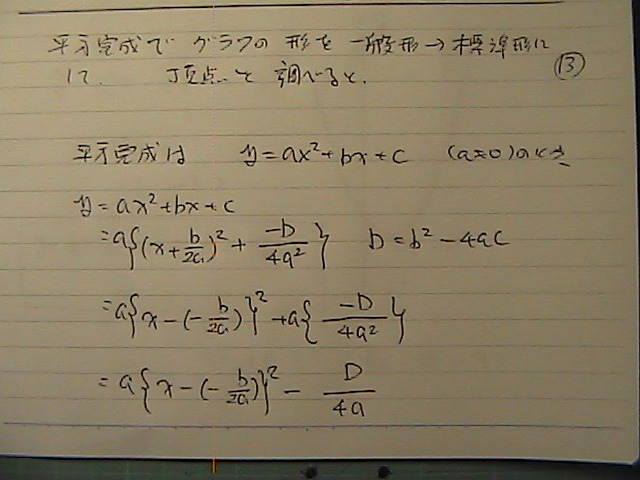 平方完成で グラフの 形を 一般形→標準形に
して 頂点を調べると、
⑬
平方完成は y=ax²+bx+c (a≠0)のとき
y=ax²+bx+c
=a{(x+b/2a)²+ -D/4a²} D=b²-4ac
=a{x-(-b/2a)}²+a{-D/4a²}
=a{x-(-b/2a)}²- D/4a